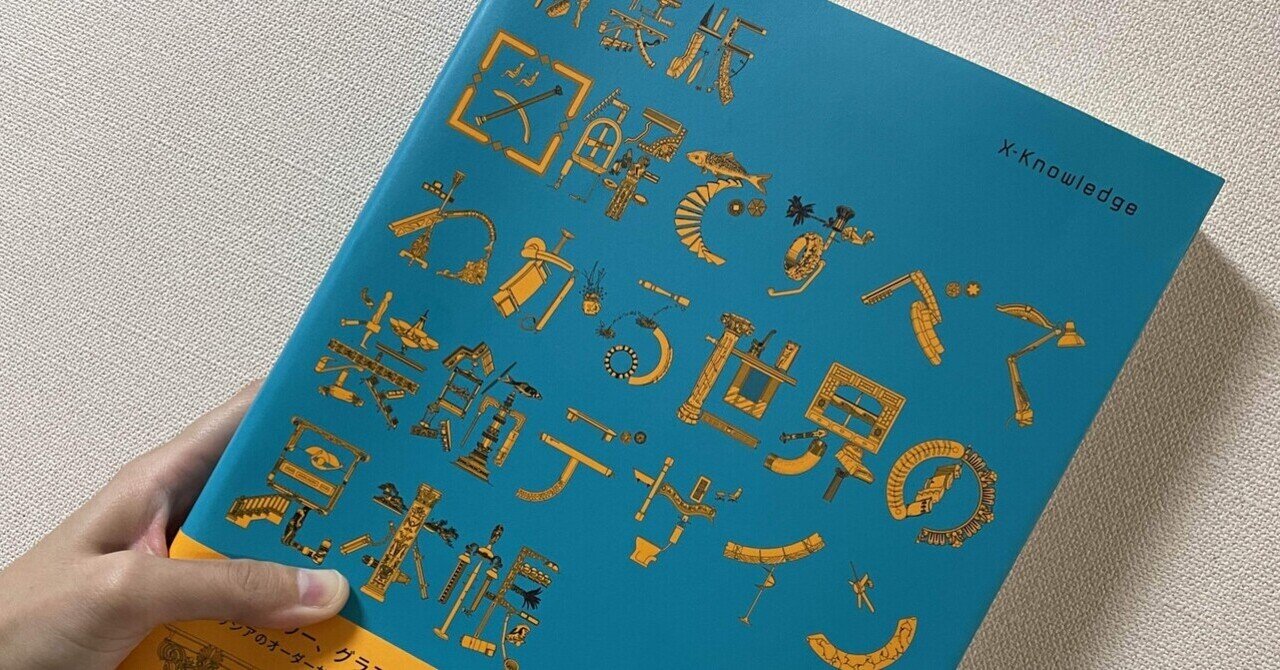 新装版
図解ですべて
わかる世界の
装飾デザイン
見本帳
X-Knowledge
リー、グラ
シアのオーダー